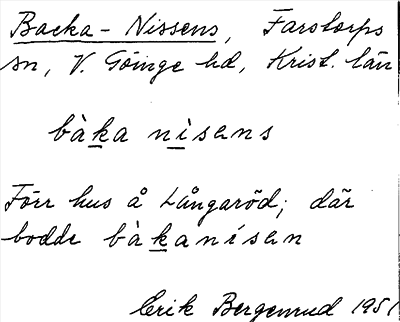 Backa-Nissens, Farstorps
sn, V. Göinge hd, Krist. län
bàka nisens
Förr hus å Långaröd; där
bodde bàkanísen
Erik Bergenrud 1951